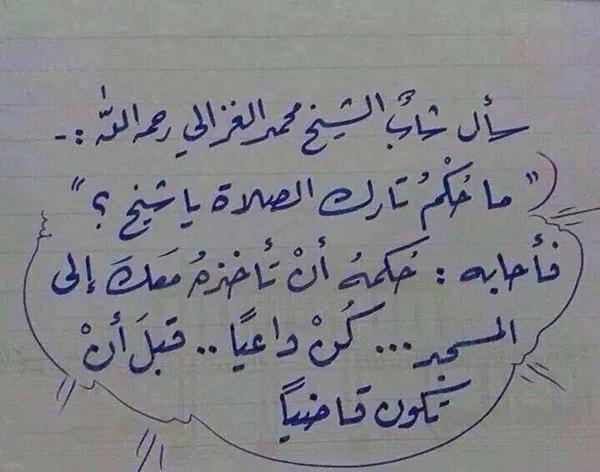 سأل شابٌ الشيخ محمد الغزالي رحمه الله :-
" ما حُكْمُ تارك الصلاة يا شيخ ؟ "
فأجابه : حُكمهُ أنْ تأخذهُ معَكَ إلى
المسجد ... كُنْ داعيًا .. قبلَ أنْ
تكون قاضياً